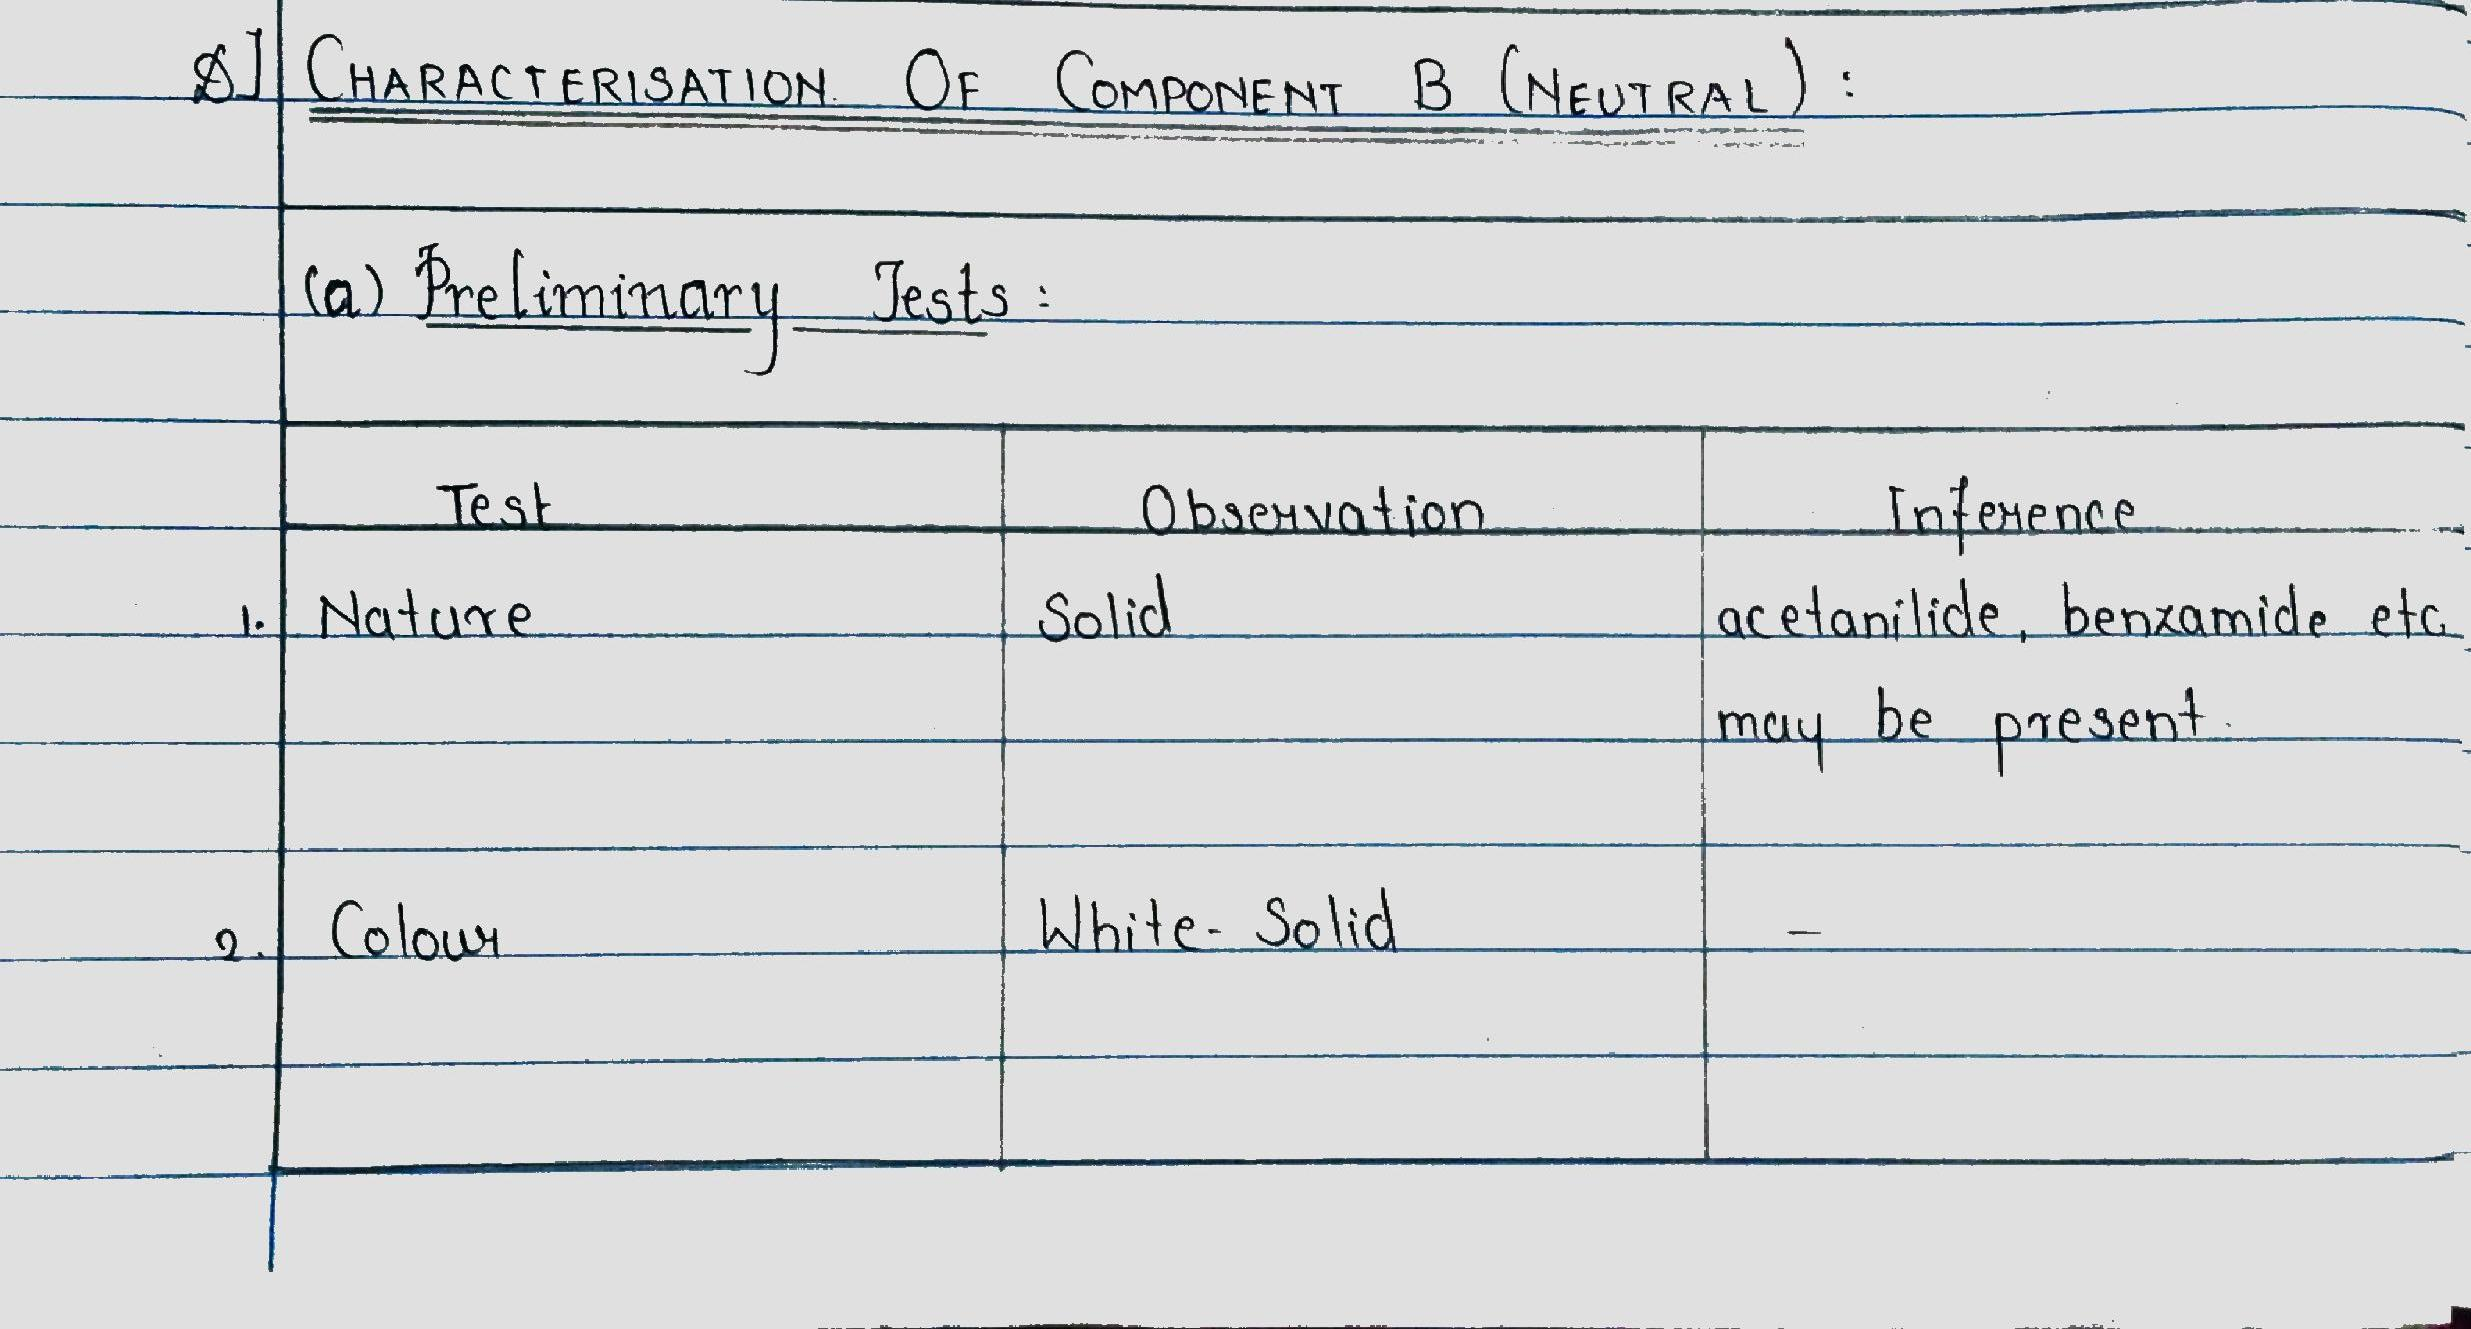 CHARACTERISATION OF COMPONENT B (NEUTRAL) :
(a) Preliminary Tests :
Test Observation Inference
1. Nature Solid acetanilide, benzamide etc
may be present.
2. Colour White-Solid -